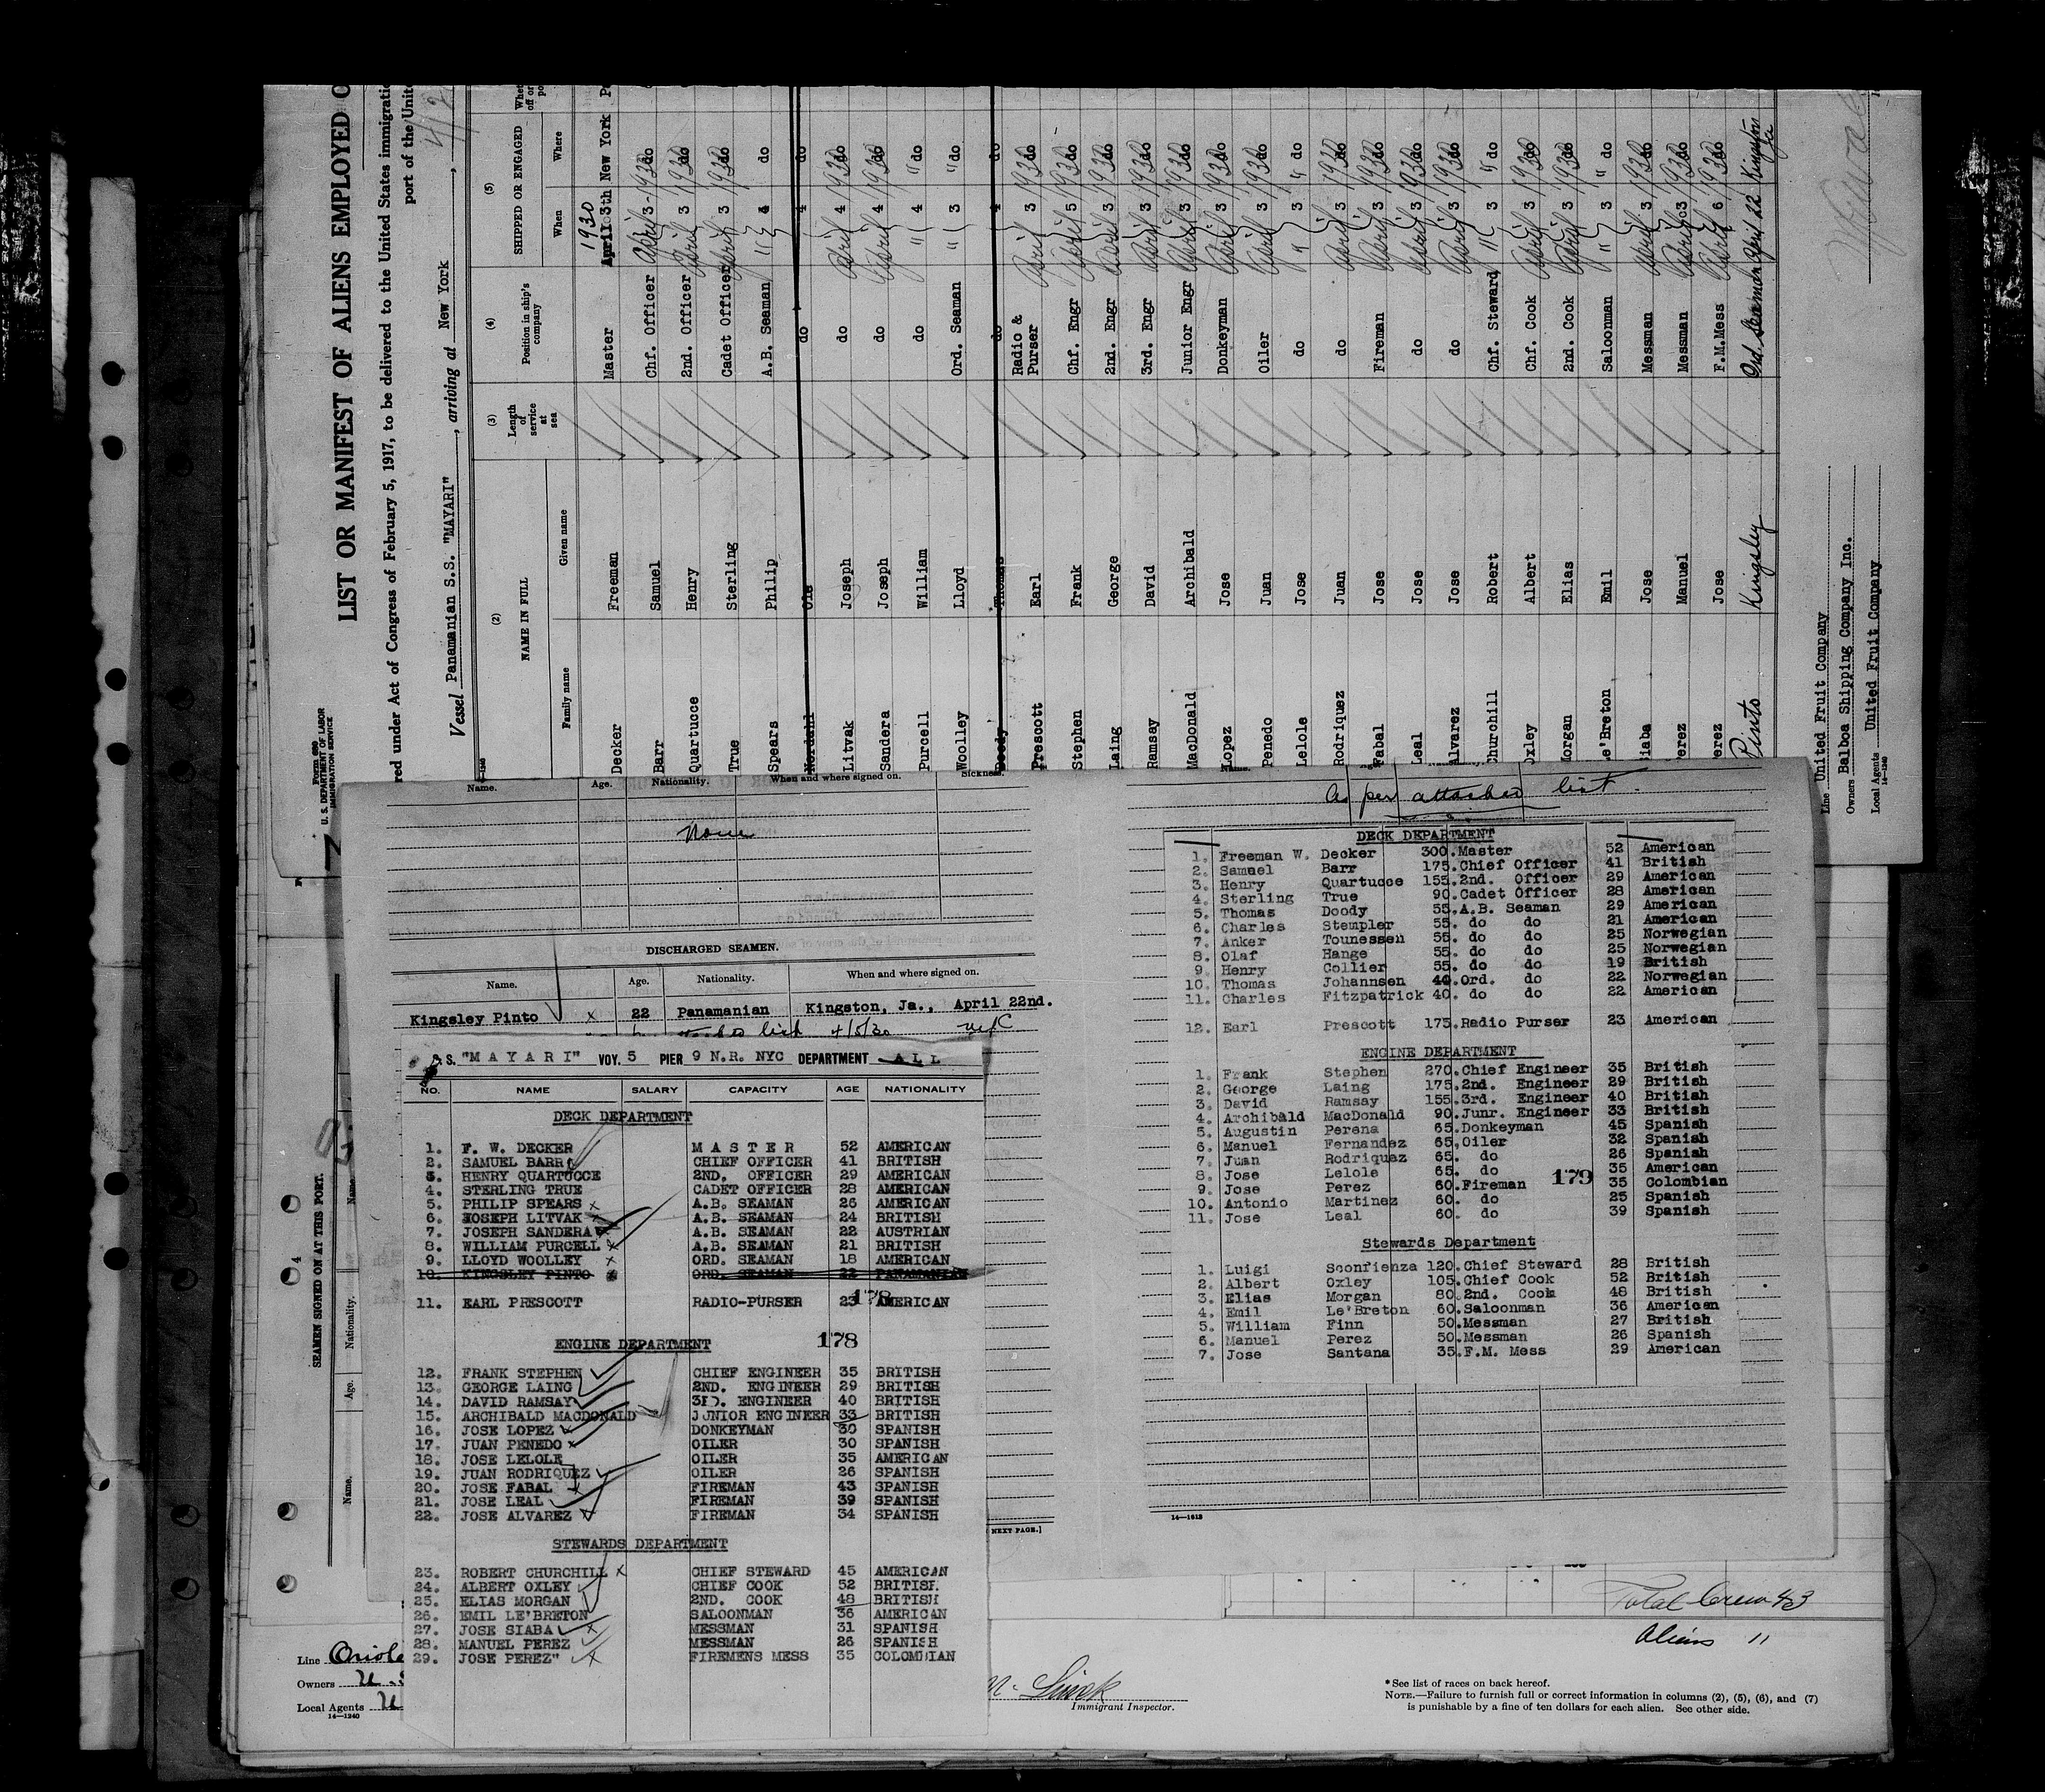 Form 689
U. S. DEPARTMENT OF LABOR
IMMIGRATION SERVICE
LIST OR MANIFEST OF ALIENS EMPLOYED O
red under Act of Congress of February 5, 1917, to be delivered to the United States immigratio
port of the Unite
Vessel Panamanian S.S. "MAYARI", arriving at New York
(2) (3) (4) (5)
NAME IN FULL Length of service at sea Position in ship's company SHIPPED OR ENGAGED
Family name Given name When Where
Decker Freeman Master 1930 April 3th New York
Barr Samuel Chf. Officer April 3 - 1930 do
Quartucce Henry 2nd. Officer April 3 1930 do
True Sterling Cadet Officer April 3 1930 do
Spears Philip A.B. Seaman " 4 do
Nordahl Ole do 4 do
Litvak Joseph do April 4 1930 do
Sandera Joseph do April 4 1930 do
Purcell William do " 4 " do
Woolley Lloyd Ord. Seaman " 3 " do
Doody Thomas do 4 do
Prescott Earl Radio & Purser April 3 1930 do
Stephen Frank Chf. Engr April 5 1930 do
Laing George 2nd. Engr April 3 1930 do
Ramsay David 3rd. Engr April 3 1930 do
MacDonald Archibald Junior Engr April 3 1930 do
Lopez Jose Donkeyman April 3 1930 do
Penedo Juan Oiler April 3 1930 do
Lelole Jose do " 3 " do
Rodriquez Juan do April 3 1930 do
Fabal Jose Fireman April 3 1930 do
Leal Jose do April 3 1930 do
Alvarez Jose do April 3 1930 do
Churchill Robert Chf. Steward " 3 " do
Oxley Albert Chf. Cook April 3 1930 do
Morgan Elias 2nd. Cook April 3 1930 do
Le'Breton Emil Saloonman " 3 " do
Siaba Jose Messman April 3 1930 do
Perez Manuel Messman April 3 1930 do
Perez Jose F.M.Mess April 6 1930 do
Pinto Kingsley Ord. Seaman April 22 Kingston Ja
Line United Fruit Company
Owners Balboa Shipping Company Inc.
Local Agents United Fruit Company
14—1240
Name. Age. Nationality. When and where signed on. Sickness.
None
DISCHARGED SEAMEN.
Name. Age. Nationality. When and where signed on.
Kingsley Pinto x 22 Panamanian Kingston, Ja., April 22nd.
list 4/5/30
S.S. "MAYARI" VOY. 5 PIER 9 N.R. NYC DEPARTMENT ALL
NO. NAME SALARY CAPACITY AGE NATIONALITY
DECK DEPARTMENT
1. F. W. DECKER MASTER 52 AMERICAN
2. SAMUEL BARR CHIEF OFFICER 41 BRITISH
3. HENRY QUARTUCCE 2ND. OFFICER 29 AMERICAN
4. STERLING TRUE CADET OFFICER 28 AMERICAN
5. PHILIP SPEARS x A.B. SEAMAN 26 AMERICAN
6. JOSEPH LITVAK A.B. SEAMAN 24 BRITISH
7. JOSEPH SANDERA A.B. SEAMAN 22 AUSTRIAN
8. WILLIAM PURCELL x A.B. SEAMAN 21 BRITISH
9. LLOYD WOOLLEY x ORD. SEAMAN 18 AMERICAN
10. KINGSLEY PINTO ORD. SEAMAN 22 PANAMANIAN
11. EARL PRESCOTT RADIO-PURSER 23 AMERICAN
178
ENGINE DEPARTMENT 178
12. FRANK STEPHEN CHIEF ENGINEER 35 BRITISH
13. GEORGE LAING 2ND. ENGINEER 29 BRITISH
14. DAVID RAMSAY 3RD. ENGINEER 40 BRITISH
15. ARCHIBALD MACDONALD JUNIOR ENGINEER 33 BRITISH
16. JOSE LOPEZ DONKEYMAN 30 SPANISH
17. JUAN PENEDO OILER 30 SPANISH
18. JOSE LELOLE OILER 35 AMERICAN
19. JUAN RODRIQUEZ OILER 26 SPANISH
20. JOSE FABAL FIREMAN 43 SPANISH
21. JOSE LEAL FIREMAN 39 SPANISH
22. JOSE ALVAREZ FIREMAN 34 SPANISH
STEWARDS DEPARTMENT
23. ROBERT CHURCHILL x CHIEF STEWARD 45 AMERICAN
24. ALBERT OXLEY CHIEF COOK 52 BRITISH
25. ELIAS MORGAN 2ND. COOK 48 BRITISH
26. EMIL LE'BRETON SALOONMAN 36 AMERICAN
27. JOSE SIABA MESSMAN 31 SPANISH
28. MANUEL PEREZ MESSMAN 26 SPANISH
29. JOSE PEREZ" FIREMENS MESS 35 COLOMBIAN
As per attached list.
DECK DEPARTMENT
1. Freeman W. Decker 300. Master 52 American
2. Samuel Barr 175. Chief Officer 41 British
3. Henry Quartucce 155. 2nd. Officer 29 American
4. Sterling True 90. Cadet Officer 28 American
5. Thomas Doody 55. A.B. Seaman 29 American
6. Charles Stempler 55. do do 21 American
7. Anker Tounessen 55. do do 25 Norwegian
8. Olaf Hange 55. do do 25 Norwegian
9. Henry Collier 55. do do 19 British
10. Thomas Johannsen 40. Ord. do 22 Norwegian
11. Charles Fitzpatrick 40. do do 22 American
12. Earl Prescott 175. Radio Purser 23 American
ENGINE DEPARTMENT
1. Frank Stephen 270. Chief Engineer 35 British
2. George Laing 175. 2nd. Engineer 29 British
3. David Ramsay 155. 3rd. Engineer 40 British
4. Archibald MacDonald 90. Junr. Engineer 33 British
5. Augustin Perena 65. Donkeyman 45 Spanish
6. Manuel Fernandez 65. Oiler 32 Spanish
7. Juan Rodriquez 65. do 26 Spanish
8. Jose Lelole 65. do 35 American
9. Jose Perez 60. Fireman 35 Colombian
10. Antonio Martinez 60. do 25 Spanish
11. Jose Leal 60. do 39 Spanish
179
Stewards Department
1. Luigi Sconfienza 120. Chief Steward 28 British
2. Albert Oxley 105. Chief Cook 52 British
3. Elias Morgan 80. 2nd. Cook 48 British
4. Emil Le'Breton 60. Saloonman 36 American
5. William Finn 50. Messman 27 British
6. Manuel Perez 50. Messman 26 Spanish
7. Jose Santana 35. F.M. Mess 29 American
14—1612
NEXT PAGE.]
SEAMEN SIGNED ON AT THIS PORT.
Name. Age. Nationality. Name.
Total Crew 43
Aliens 11
Line
Owners
Local Agents
14—1240
Immigrant Inspector.
* See list of races on back hereof.
NOTE.—Failure to furnish full or correct information in columns (2), (5), (6), and (7)
is punishable by a fine of ten dollars for each alien. See other side.